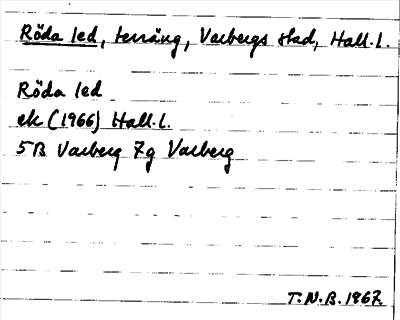 Röda led, terräng, Varbergs stad, Hall. l.
Röda led
ek (1966) Hall. l.
5B Varberg 7g Varberg
T.N.B. 1967